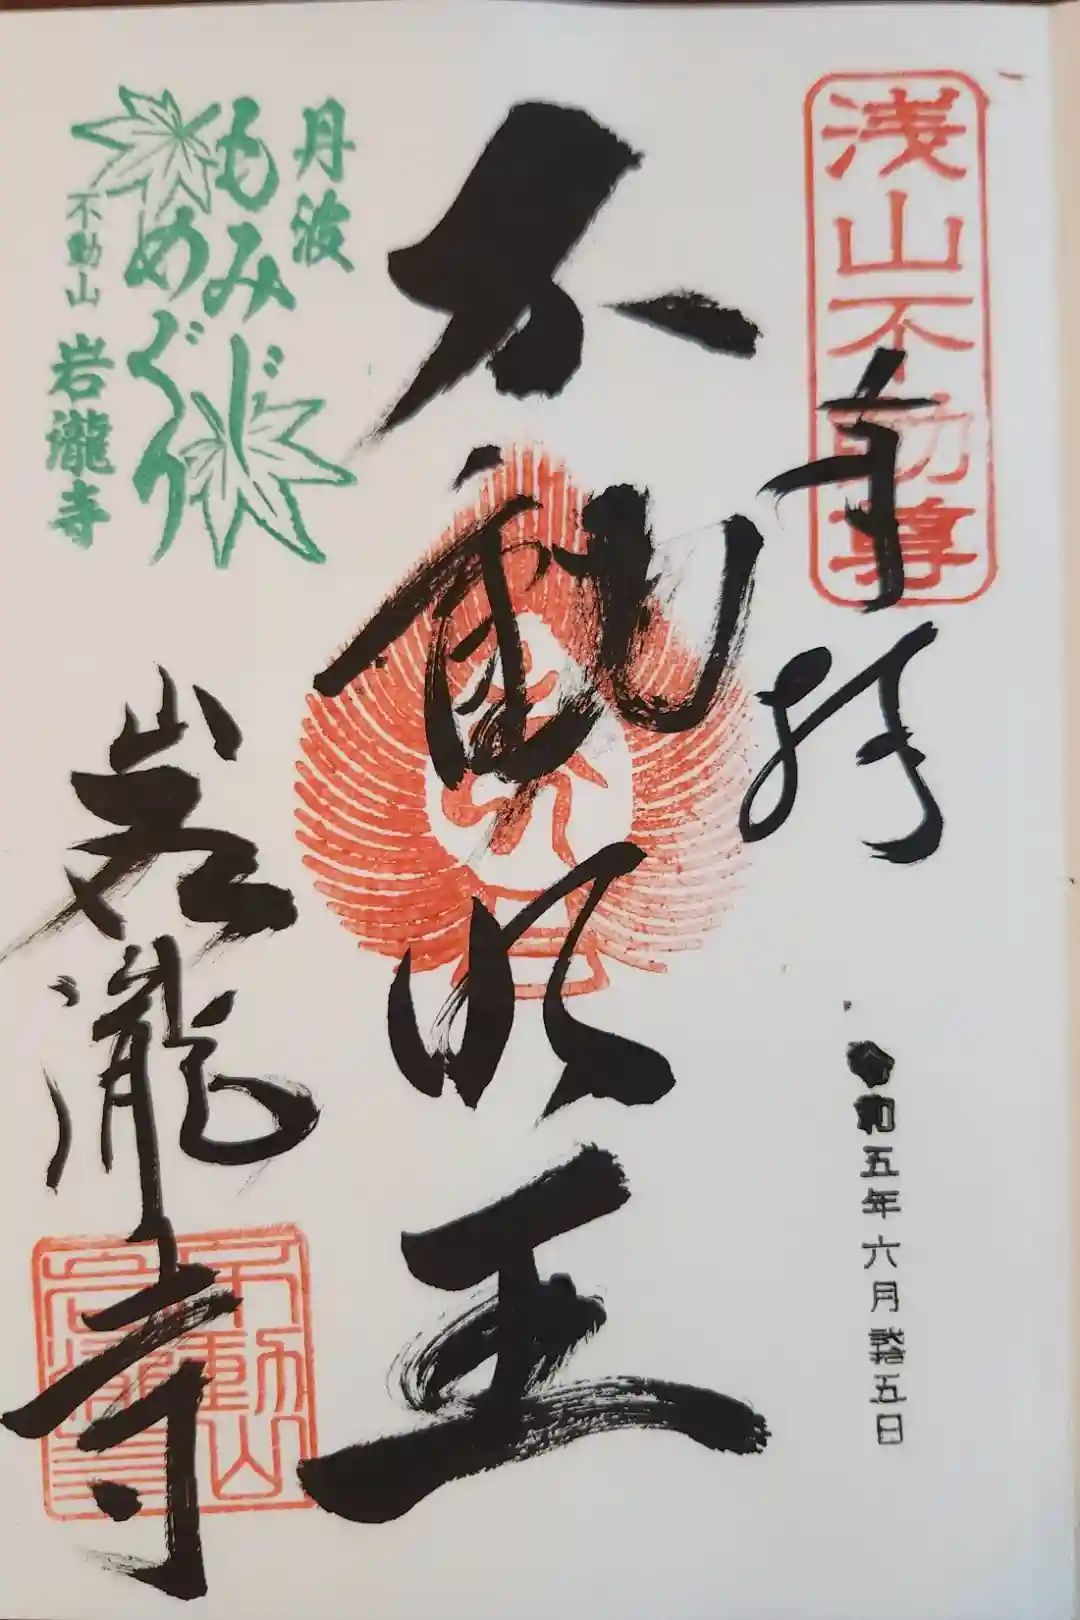 浅山不動尊
奉拝
令和五年六月拾五日
不動明王
丹波
もみじ
めぐり
不動山 岩瀧寺
岩瀧寺
不動山
岩瀧寺